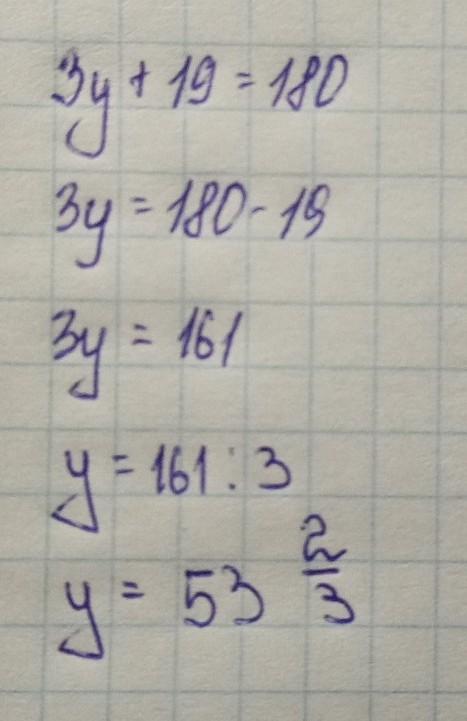 3y + 19 = 180
3y = 180 - 19
3y = 161
y = 161 : 3
y = 53 2/3